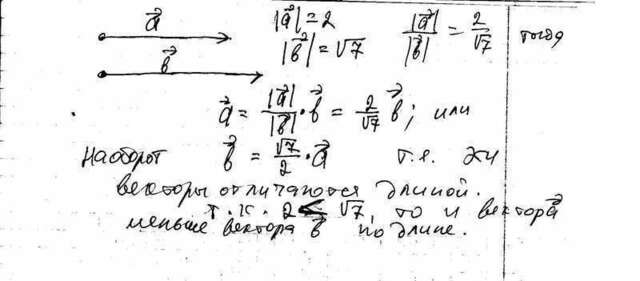 a⃗ |a⃗| = 2 |a⃗|/|b⃗| = 2/√7 тогда
b⃗ |b⃗| = √7
a⃗ = |a⃗|/|b⃗| · b⃗ = 2/√7 b⃗; или
Наоборот b⃗ = √7/2 · a⃗ т.е. эти
векторы отличаются длиной.
т.к. 2 < √7, то и вектор a⃗
меньше вектора b⃗ по длине.